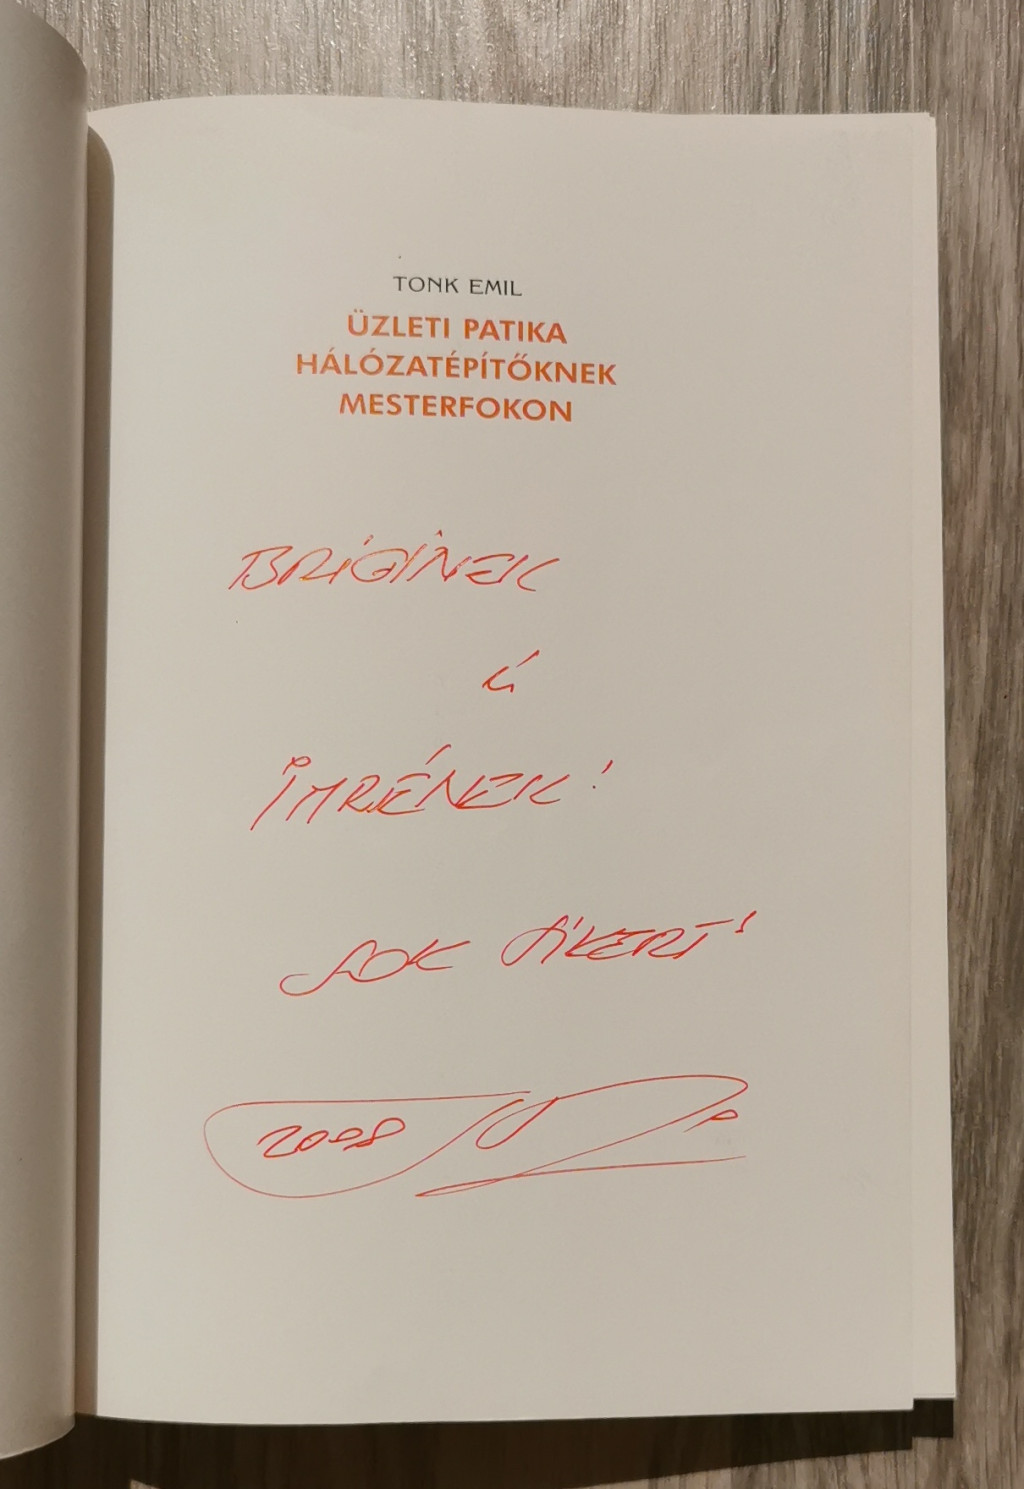 TONK EMIL
ÜZLETI PATIKA
HÁLÓZATÉPÍTŐKNEK
MESTERFOKON
BRIGINEK
IMRÉNEK!
SOK SIKERT!
2008